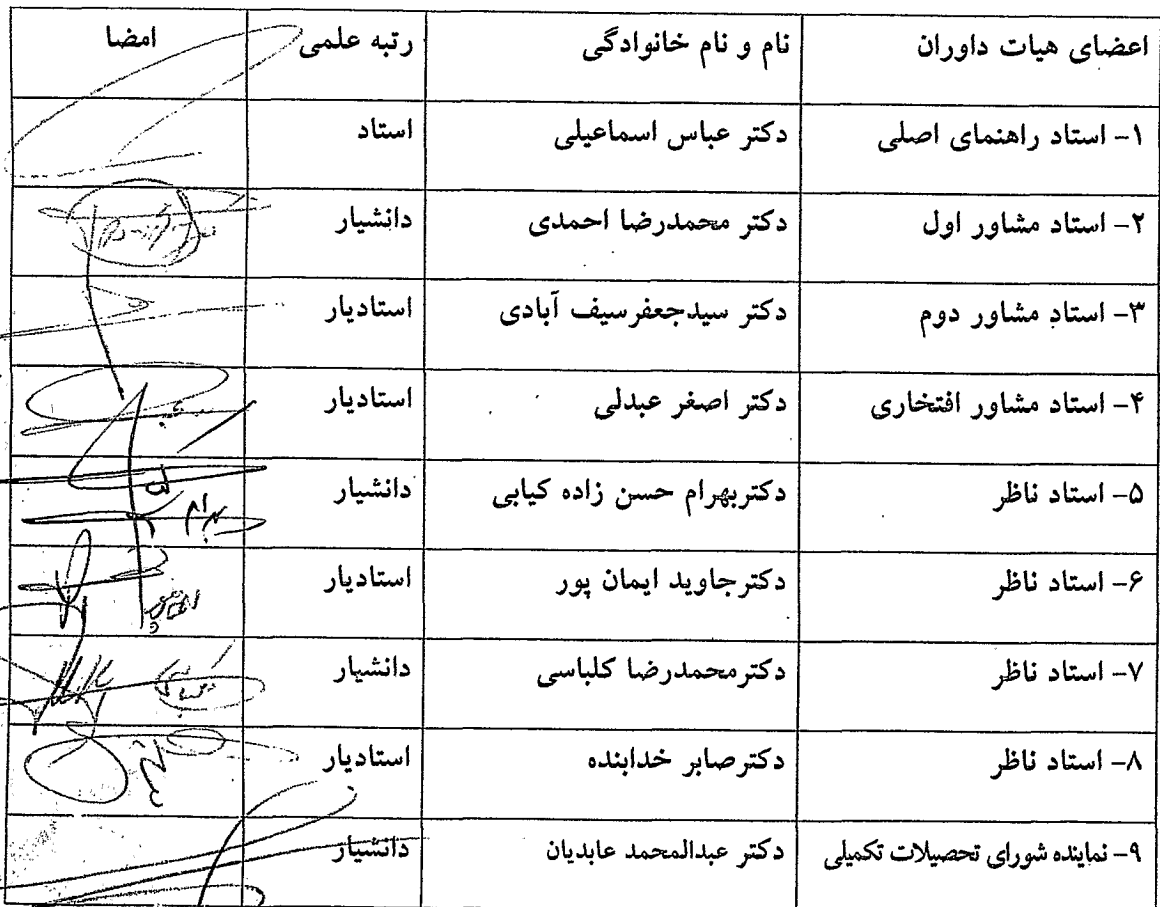 اعضای هیات داوران	نام و نام خانوادگی	رتبه علمی	امضا
۱- استاد راهنمای اصلی	دکتر عباس اسماعیلی	استاد
۲- استاد مشاور اول	دکتر محمدرضا احمدی	دانشیار
۳- استاد مشاور دوم	دکتر سیدجعفرسیف آبادی	استادیار
۴- استاد مشاور افتخاری	دکتر اصغر عبدلی	استادیار
۵- استاد ناظر	دکتربهرام حسن زاده کیابی	دانشیار
۶- استاد ناظر	دکترجاوید ایمان پور	استادیار
۷- استاد ناظر	دکترمحمدرضا کلباسی	دانشیار
۸- استاد ناظر	دکترصابر خدابنده	استادیار
۹- نماینده شورای تحصیلات تکمیلی	دکتر عبدالمحمد عابدیان	دانشیار